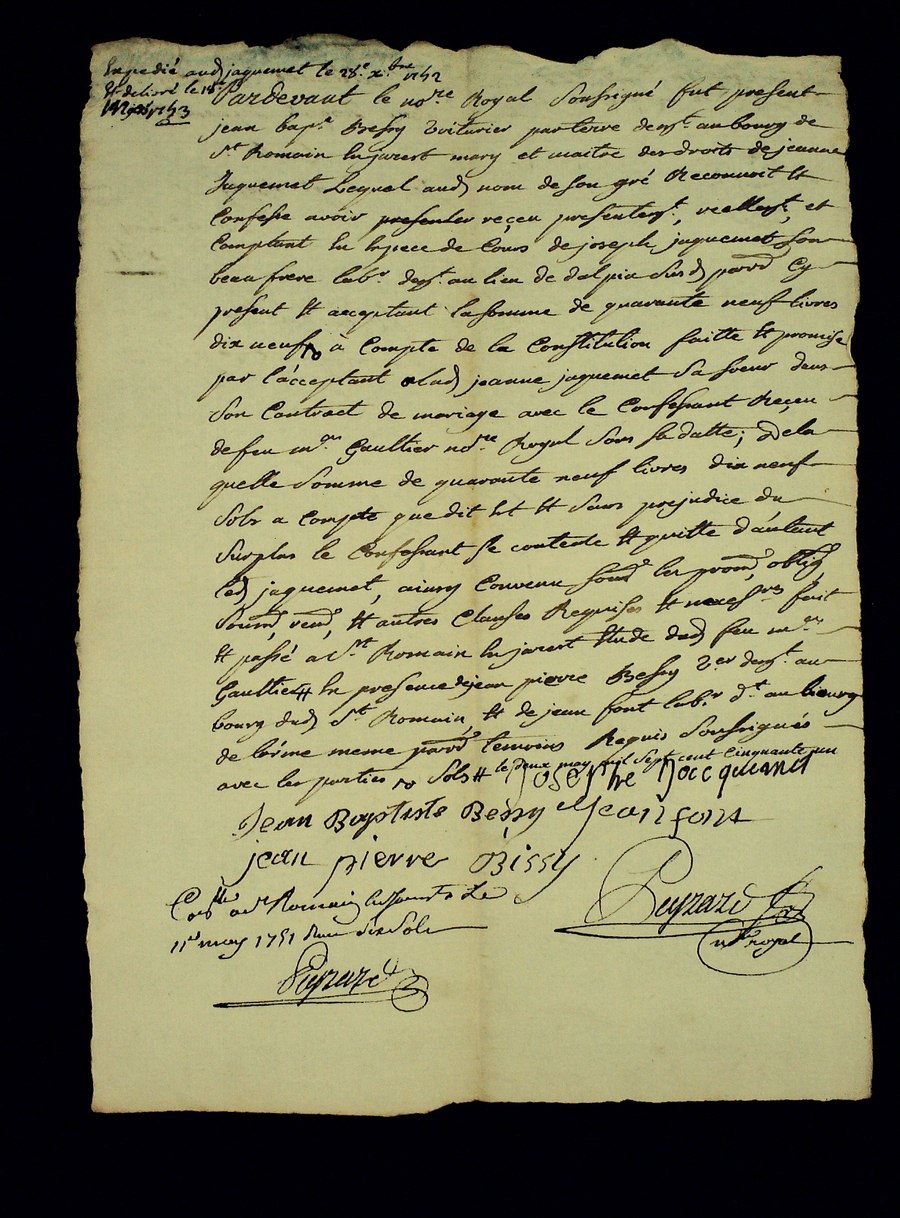 Expedié aud jaquemet le 28e xbre 1752
et delivré le 18e
1753
Pardevant le nore Royal Soussigné fut present
jean bapte Bessy Voiturier par terre demt au bourg de
St Romain en jarest mary et maitre des droits de jeanne
Jaquemet Lequel aud nom de son gré Reconnoit et
Confesse avoir presenter reçeu presentemt, reellemt, et
Comptant en espece de Cours de joseph jaquemet son
beau frere labr demt au lieu de dalpin susd parrd Cy
present et acceptant la somme de quarante neuf livres
dix neuf à Compte de la Constitution faitte et promise
par l'acceptant a lad jeanne jaquemet sa soeur dans
son Contract de mariage avec le Confessant Reçeu
de feu me Gaultier nore Royal sous sa datte; de la
quelle somme de quarante neuf livres dix neuf
sols a compte que dit est et sans prejudice du
surplus le Confessant se contente et quitte d'autant
led jaquemet, ainsy Convenu sous les prom, oblig,
soum, ren, et autres Clauses Requises et necessres fait
et passé a St Romain en jarest Etude dud feu me
Gaultier # en presence de jean pierre Bessy Ver demt au
bourg dud St Romain, et de jean font labr dt au bourg
de lorme meme parrd temoins Requis soussignés
avec les parties sols # le deux may mil sept cent cinquante un
Josephe Jacquemet
Jean Baptiste Bessy Jean font
jean pierre Bissy
Conlé a St Romain en Jarests Le
11e may 1751 Reçu six Sols
Peyzard
nre royal
Peyzard